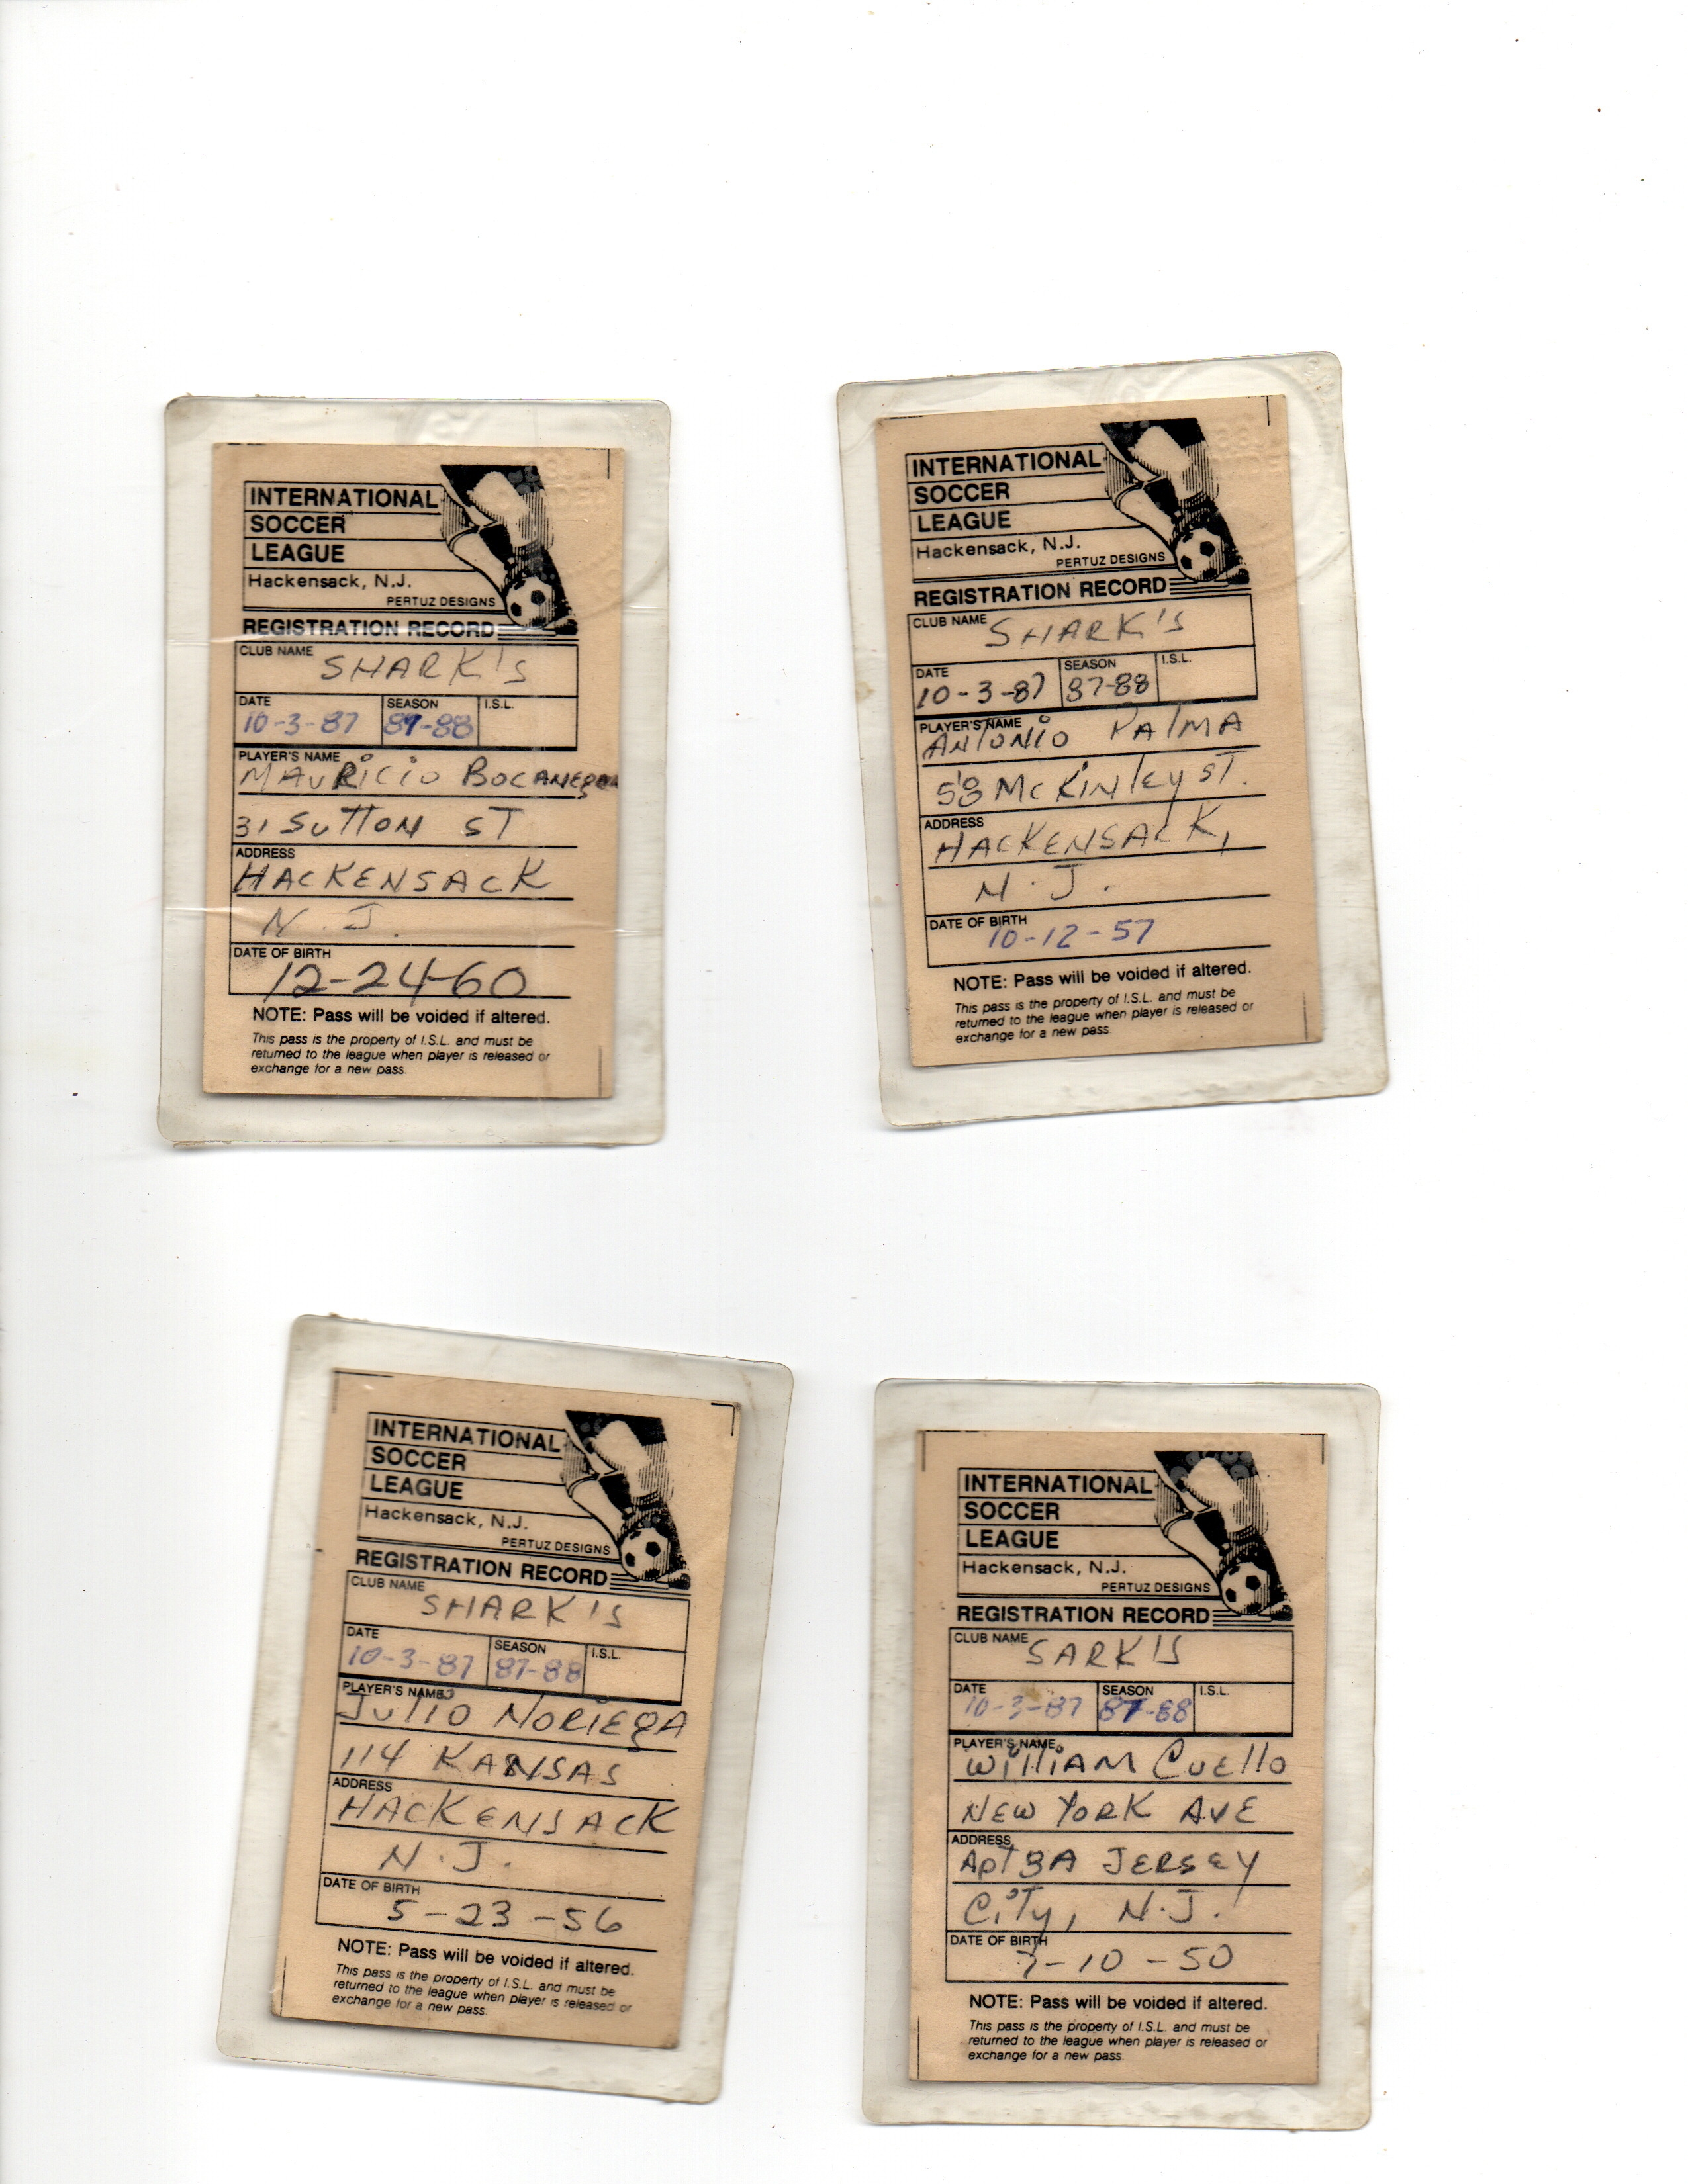 INTERNATIONAL
SOCCER
LEAGUE
Hackensack, N.J.
PERTUZ DESIGNS
REGISTRATION RECORD
CLUB NAME
SHARK'S
DATE SEASON I.S.L.
10-3-87 87-88
PLAYER'S NAME
MAURICIO BOCANEGRA
31 SUTTON ST
ADDRESS
HACKENSACK
N.J.
DATE OF BIRTH
12-24-60
NOTE: Pass will be voided if altered.
This pass is the property of I.S.L. and must be
returned to the league when player is released or
exchange for a new pass.
INTERNATIONAL
SOCCER
LEAGUE
Hackensack, N.J.
PERTUZ DESIGNS
REGISTRATION RECORD
CLUB NAME
SHARK'S
DATE SEASON I.S.L.
10-3-87 87-88
PLAYER'S NAME
ANTONIO PALMA
58 McKINLEY ST.
ADDRESS
HACKENSACK,
N.J.
DATE OF BIRTH
10-12-57
NOTE: Pass will be voided if altered.
This pass is the property of I.S.L. and must be
returned to the league when player is released or
exchange for a new pass
INTERNATIONAL
SOCCER
LEAGUE
Hackensack, N.J.
PERTUZ DESIGNS
REGISTRATION RECORD
CLUB NAME
SHARK'S
DATE SEASON I.S.L.
10-3-87 87-88
PLAYER'S NAME
JULIO NORIEGA
114 KANSAS
ADDRESS
HACKENSACK
N.J.
DATE OF BIRTH
5-23-56
NOTE: Pass will be voided if altered.
This pass is the property of I.S.L. and must be
returned to the league when player is released or
exchange for a new pass.
INTERNATIONAL
SOCCER
LEAGUE
Hackensack, N.J.
PERTUZ DESIGNS
REGISTRATION RECORD
CLUB NAME
SARK'S
DATE SEASON I.S.L.
10-3-87 87-88
PLAYER'S NAME
WILLIAM CUELLO
NEW YORK AVE
ADDRESS
APT 3A JERSEY
CITY, N.J.
DATE OF BIRTH
7-10-50
NOTE: Pass will be voided if altered.
This pass is the property of I.S.L. and must be
returned to the league when player is released or
exchange for a new pass.